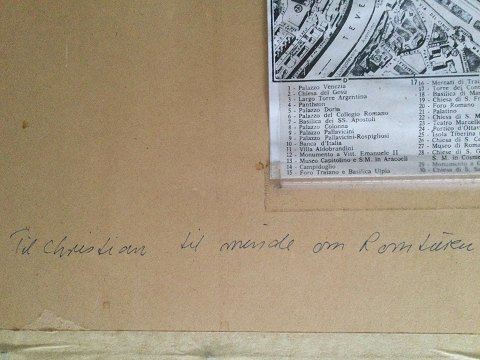 TEVE
D
17
1 - Palazzo Venezia
2 - Chiesa del Gesù
3 - Largo Torre Argentina
4 - Pantheon
5 - Palazzo Doria
6 - Palazzo del Collegio Romano
7 - Basilica dei SS. Apostoli
8 - Palazzo Colonna
9 - Palazzo Pallavicini
9 - Palazzo Pallavicini-Rospigliosi
10 - Banca d'Italia
11 - Villa Aldobrandini
12 - Monumento a Vitt. Emanuele II
13 - Museo Capitolino e S.M. in Aracoeli
14 - Campidoglio
15 - Foro Traiano e Basilica Ulpia
16 - Mercati di Trai
17 - Torre dei Con
18 - Basilica di Mas
19 - Chiesa di S. Fr
20 - Foro Romano
21 - Palatino
22 - Chiesa di S. M
23 - Teatro Marcello
24 - Portico d'Ottav
25 - Isola Tiberina
26 - Chiesa di S. G
27 - Museo di Roma
28 - Chiese di S. G
S. M. in Cosme
29 - Monumento a
30 - Chiesa di S.
Til Christian til minde om Romturen